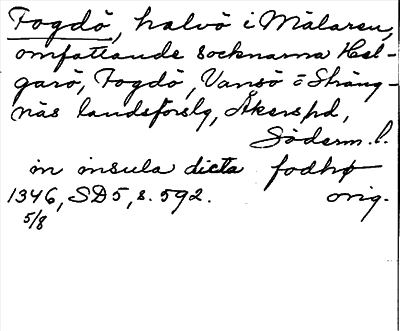 Fogdö, halvö i Mälaren,
omfattande socknarna Hel-
garö, Fogdö, Vansö o Sträng-
näs landsförslg, Åkers hd,
Söderm. l.
in insula dicta fodhø
1346, SD5, s. 592. orig.
5/8